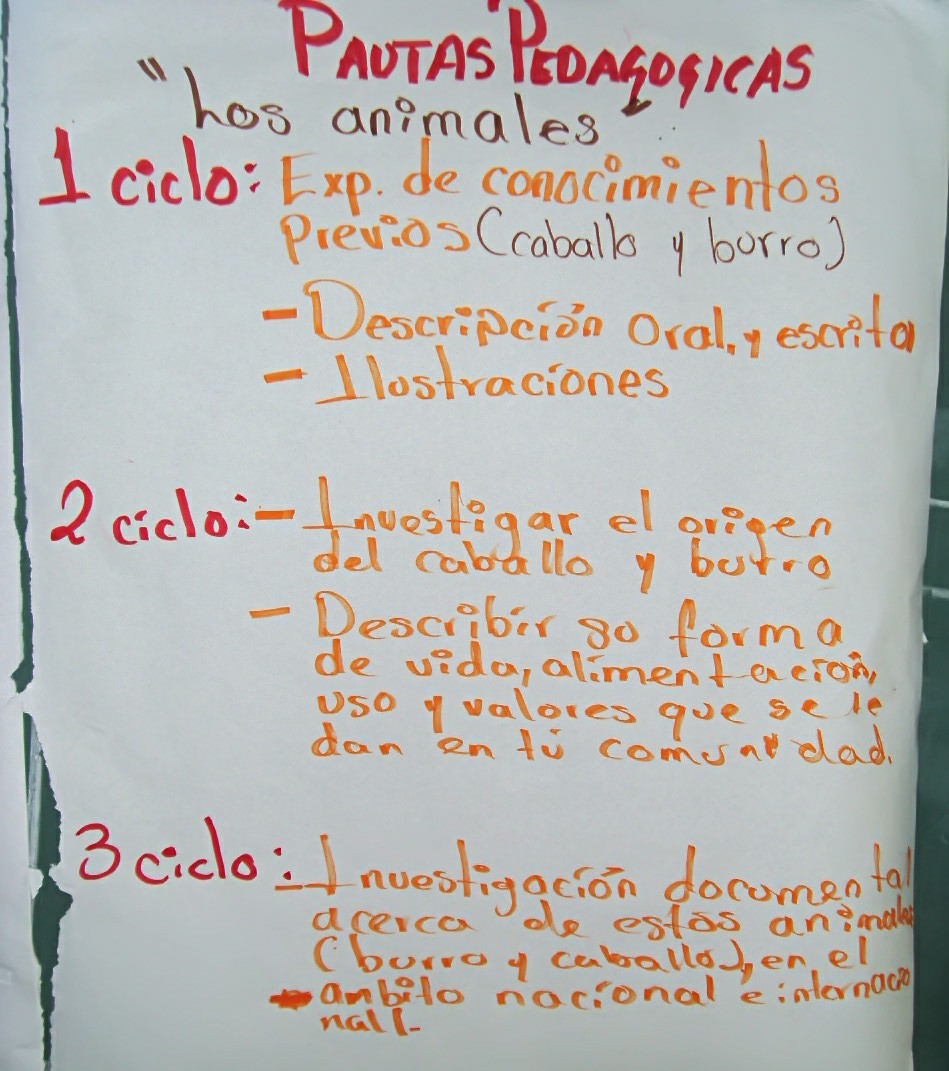 PAUTAS PEDAGOGICAS
"Los animales"
1 ciclo: Exp. de conocimientos
Previos (caballo y burro)
- Descripción Oral, y escrita
- Ilostraciones
2 ciclo: - Investigar el origen
del caballo y burro
- Describir so forma
de vida, alimentación,
uso y valores que se le
dan en tú comunidad.
3 ciclo: - Investigación documental
acerca de estos animales
(burro y caballo), en el
ambito nacional e internacio
nal.